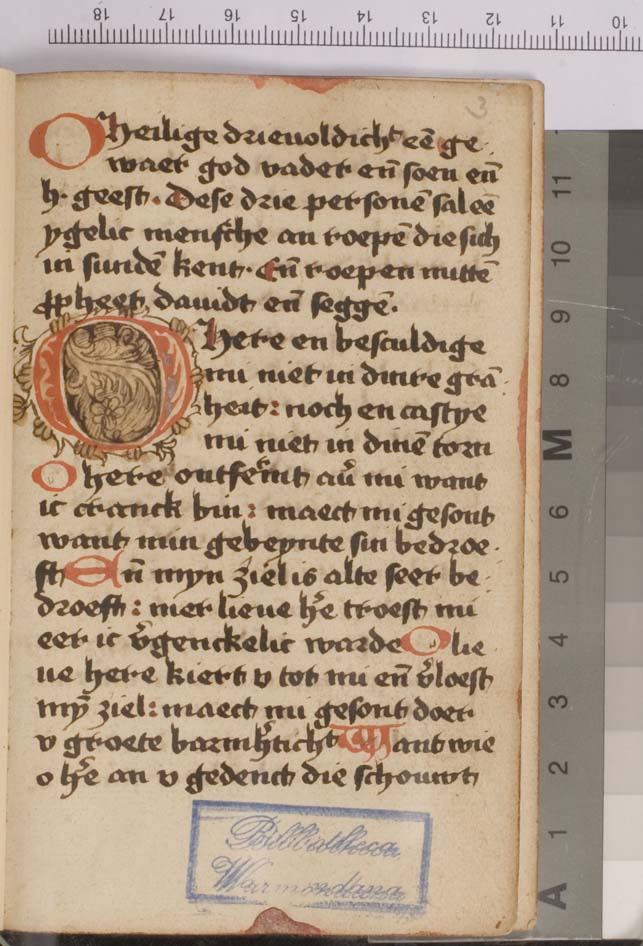 3
O heilige drievoldich͛t eē ge
waer god vader en̄ soen en̄
h. geest. Dese drie personē sal ee
ygelic mensche an roepē die sich
in sundē kent. En̄ roepen mittē
ꝓpheet davidt en̄ seggē.
O here en besculdige
mi niet in dinre gra
heit: noch en castye
mi niet in dinē torn
O here ontferͫt au̓ mi want
ic cranck bin: maect mi gesont
want min gebeynte sin bedroe
ft En̄ myn ziel is alte seer be
droeft: mer lieue he̓ troest mi
eer ic v̓genckelic warde O lie
ue here kiert v tot mi en̄ v̓loest
mȳ ziel: maect mi gesont doer
v groete barmh̓ticht̓ Want wie
o he̓ an v gedenct die schouwt
Bibliotheca
Warmondana
18 17 16 15 14 13 12 11 10
11
10
9
8
M
6
5
4
3
2
1
A